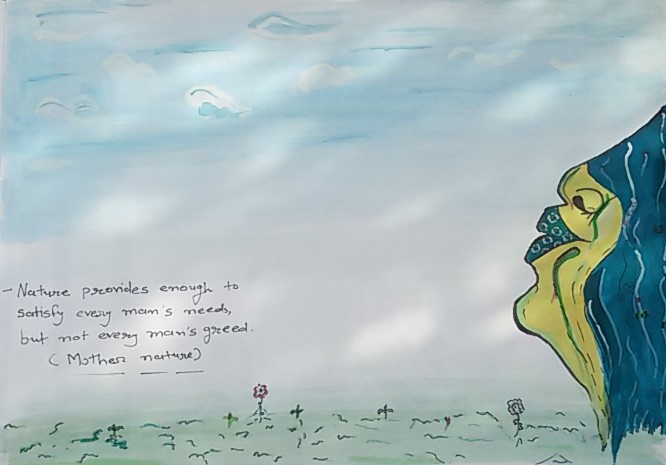 - Nature provides enough to
satisfy every man's needs,
but not every man's greed.
( Mother nature)